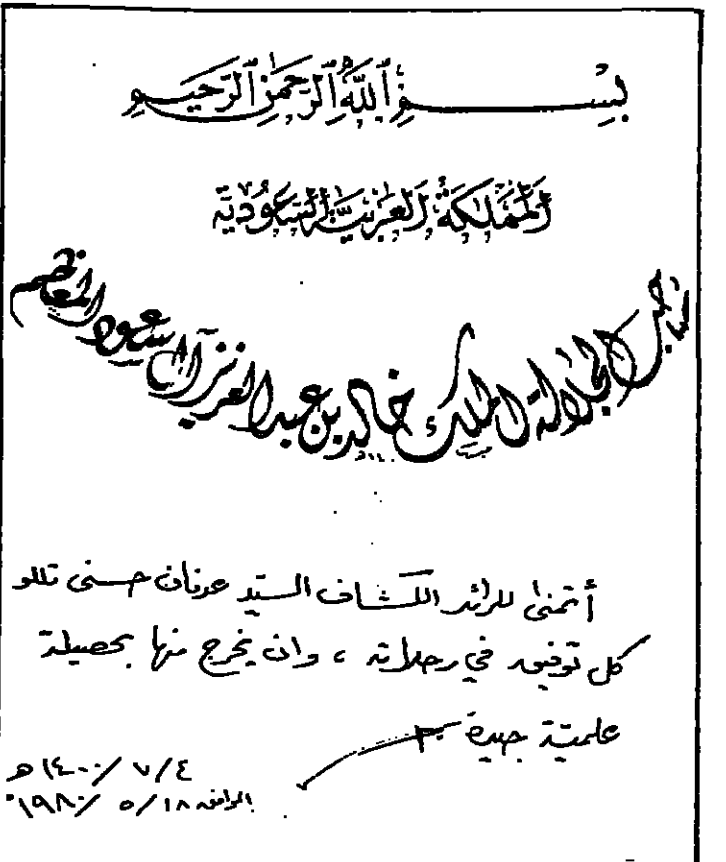 بسم الله الرحمن الرحيم
المملكة العربية السعودية
صاحب الجلالة الملك خالد بن عبد العزيز آل سعود المعظم
أتمنى للرائد الكشاف السيد عدنان حسني تللو
كل توفيق في رحلاته ، وان يخرج منها بحصيلة
علمية جيدة
٤/٧/١٤٠٠ هـ
الموافق ١٨/٥/١٩٨٠